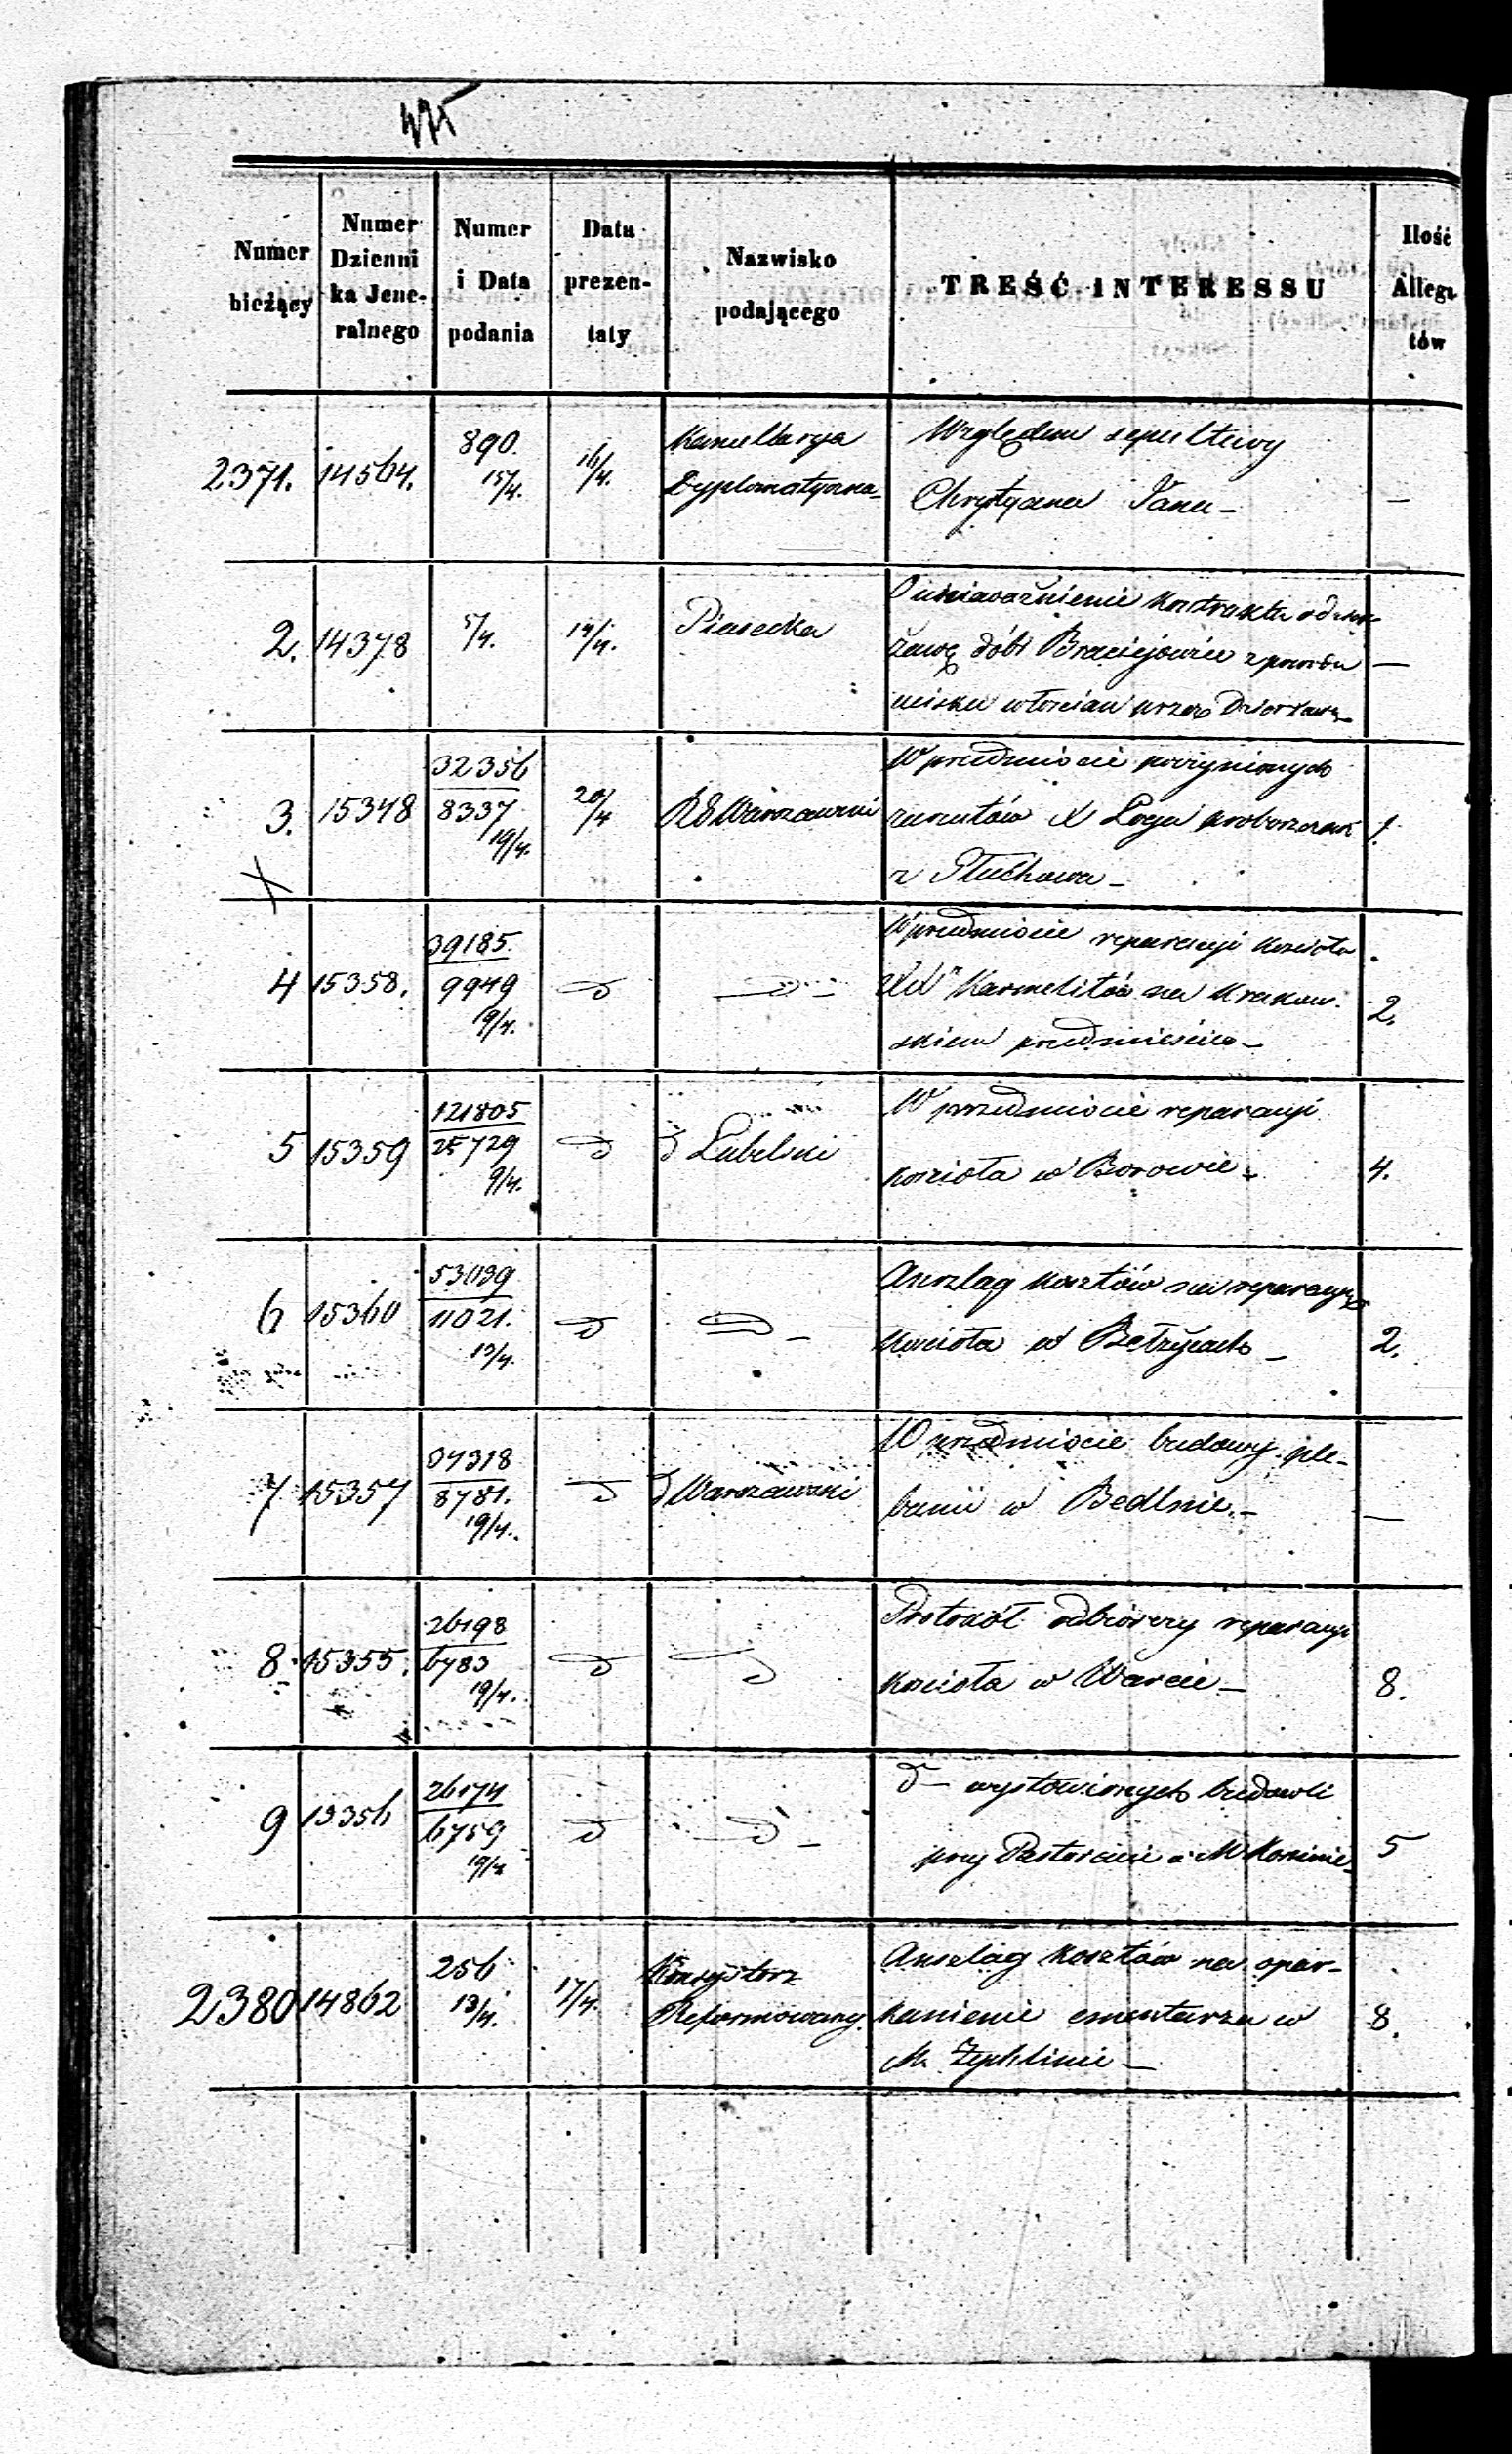 475
Numer bieżący
Numer Dziennika Jeneralnego
Numer i Data podania
Data prezentaty
Nazwisko podającego
TREŚĆ INTERESSU
Ilość Allegatów
2371. 14564. 890. 15/4. 16/4. Kancellarya Względem sepultury
Dyplomatyczna Chrystyana –
2. 14378 5/4. 14/4. Piasecka O unieważnienie kontraktu o dzier-
żawę dóbr Braciejowice z powodu –
ucisku włościan przez Dzierżawcę
3. 15348 32356 8337 19/4. 20/4 RG Warszawski W przedmiocie poczynionych
zarzutów X proboszczowi 1.
z Płuchowa –
4 15358. 39185. 9949 19/4. d d – W przedmiocie reparacyi kościoła
XX Karmelitów na Krakow- 2.
skiem przedmieściu –
5 15359 121805 25729 9/4. d d Lubelski W przedmiocie reparacyi
kościoła w Borowie – 4.
6 15360 53039 11021. 13/4. d d – Anszlag kosztów na reparacyę
kościoła w Bełżycach – 2.
7 15357 34318 8781. 19/4. d d Warszawski W przedmiocie budowy ple-
banii w Bedlnie. – –
8. 15355. 26198 6783 19/4. d d Protokół odbiorczy reparacyi
kościoła w Warcie – 8.
9 15356 26174 6759 19/4 d d – d – wystawionych budowli
przy Pastoracie w M Koninie – 5
2380 14862 256 13/4. 17/4. Konsystorz Anszlag kosztów na opar-
Reformowany. kanienie cmentarza w 8.
M. Żychlinie –